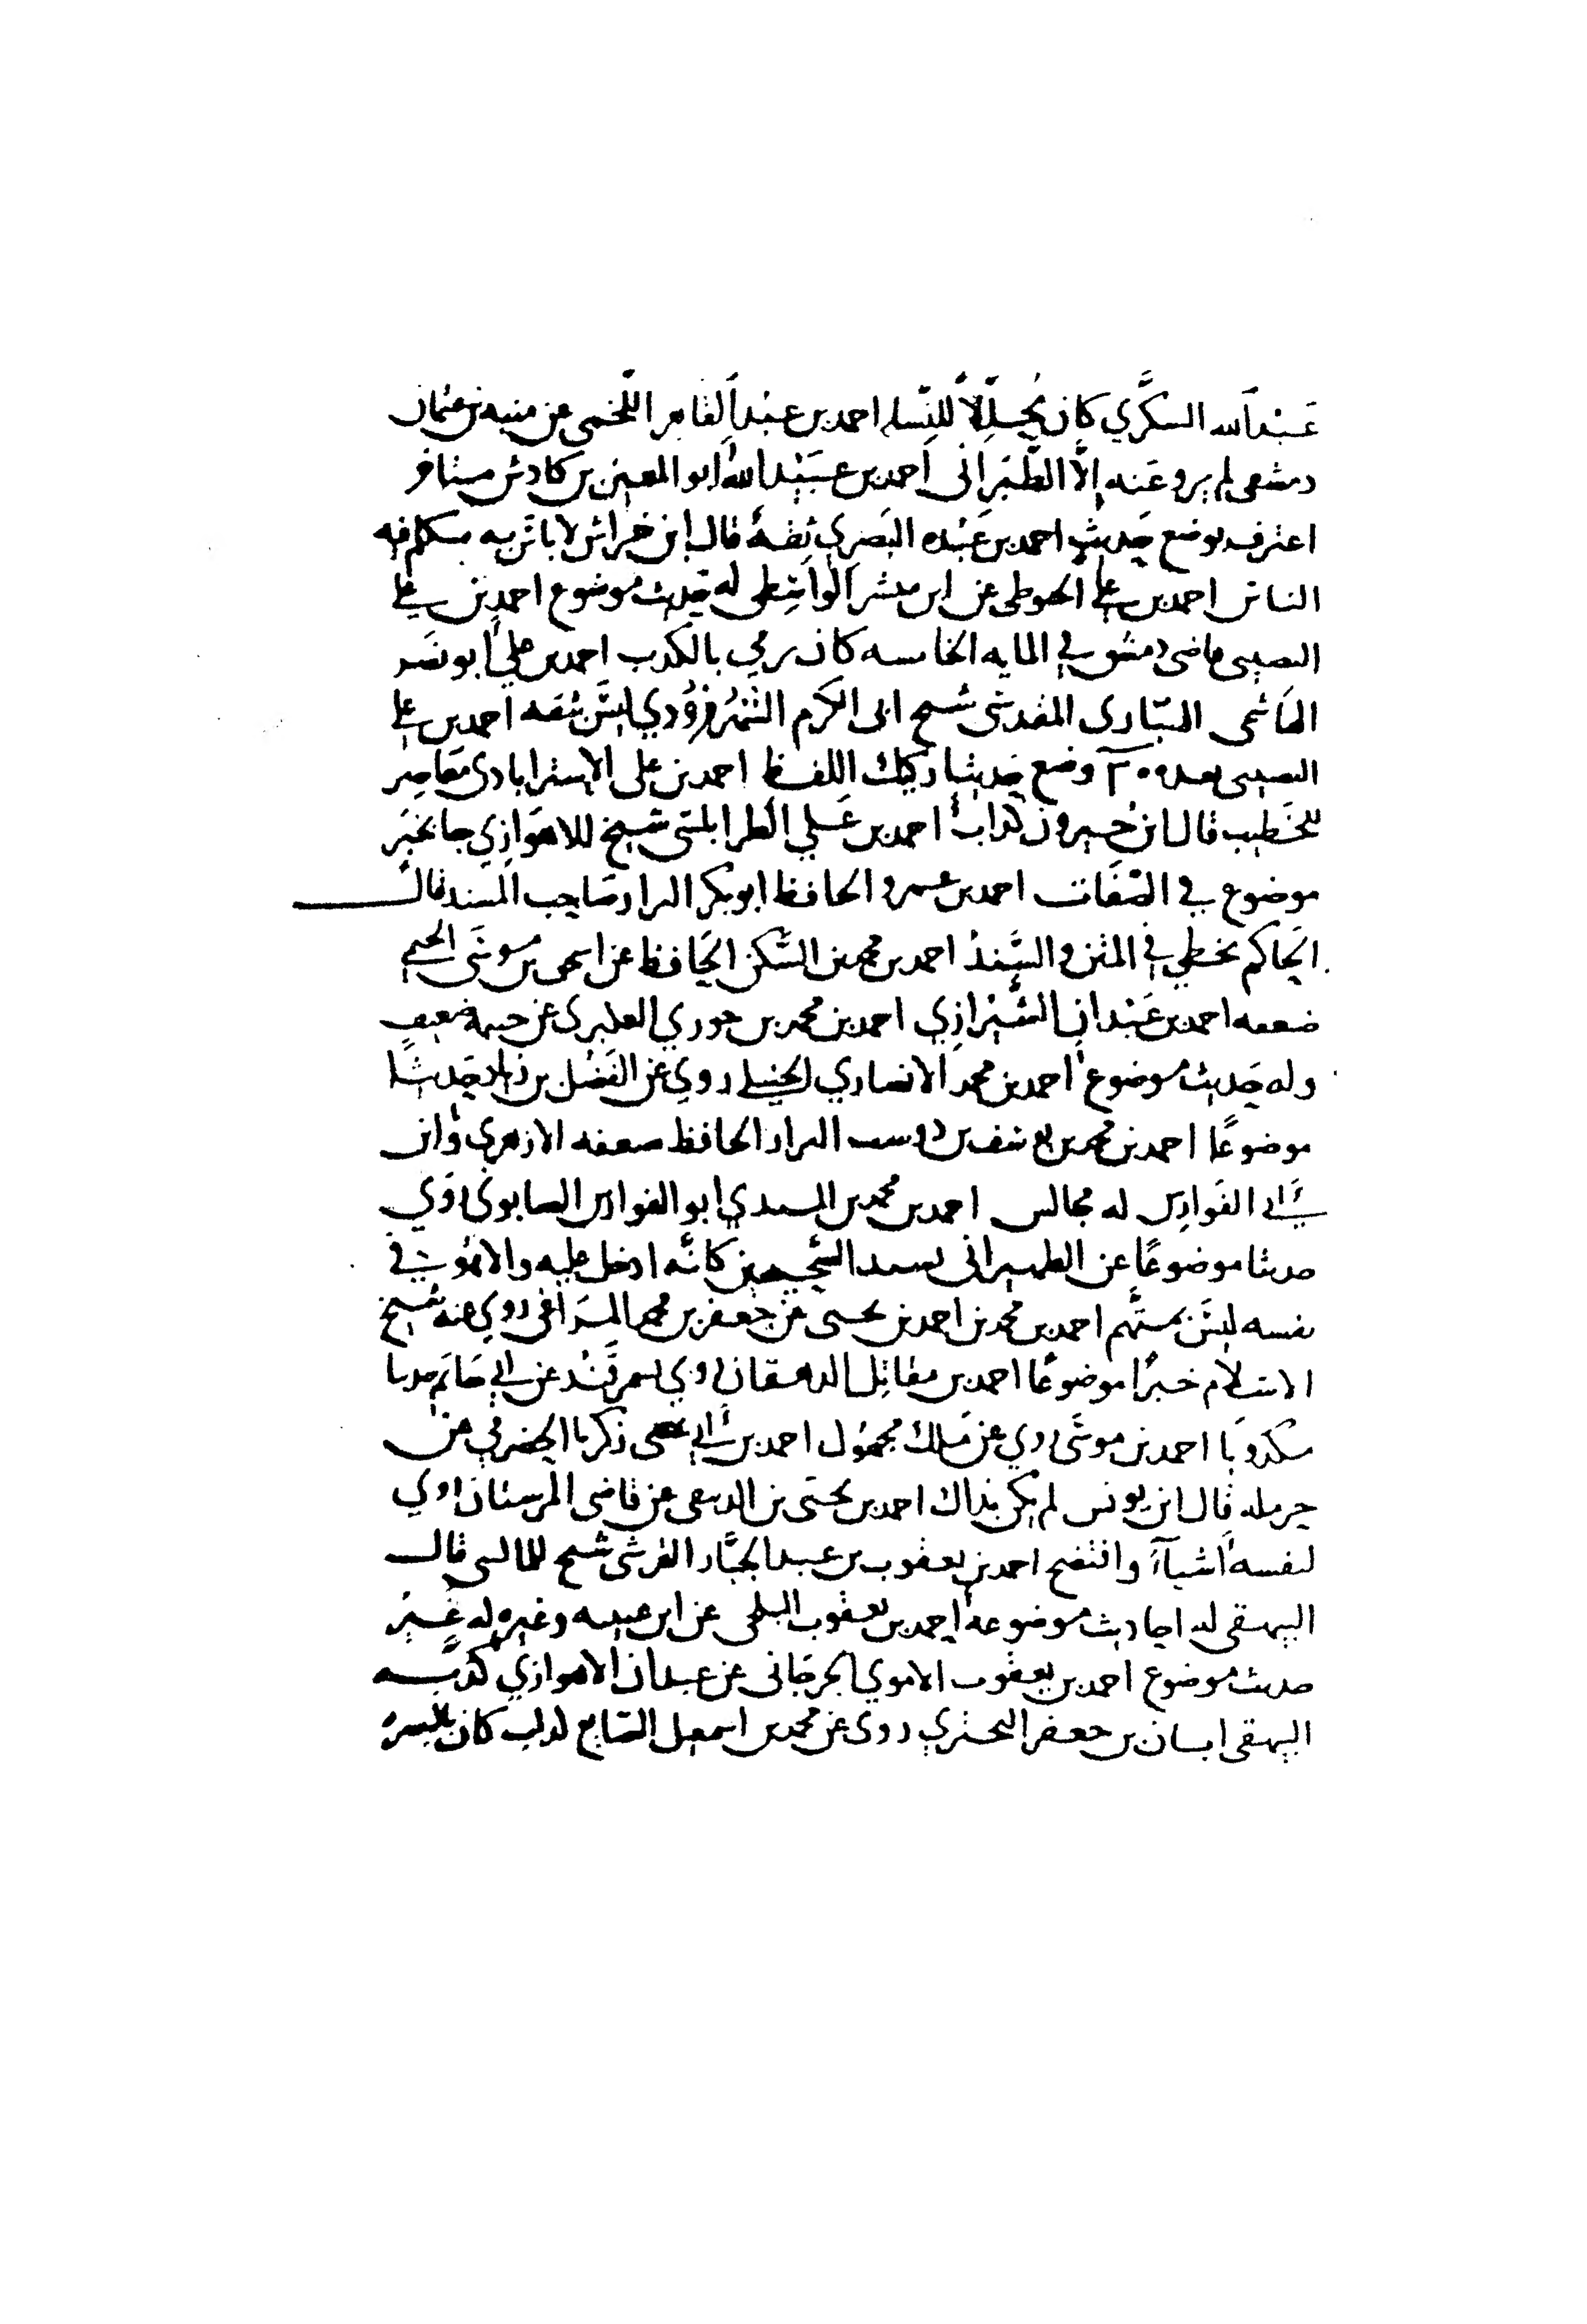 عَبْد الله السكَّري كان مُحِلِّلاً للنسا احمد بن عبْد القاهر اللَّخمي عن منبه بن عثمان
دمشقي لم يرو عَنه إلَّا الطَّبَراني احمد بن عبَيْد الله ابو العز بن كادش مسافر
اعترف بوضع حَديث احمد بن عَبْده البَصري ثِقةٌ قال ابن خراش لا باس به تكلم فيه
الناس احمد بن علي الحوطي عن ابن مبشر الواسِطي له حَديث موضوع احمد بن علي
النصيبي قاضي دمشق في المايه الخامسه كان رمي بالكذب احمد بن علي ابو نصر
الهَاشمي الهبّاري المقدسي شيخ ابي الكرم الشهرزُوري ليسَ بثقه احمد بن علي
النصيبي بعد ٢٠٠ وضع حَديثا ركيك اللفظ احمد بن علي الاسترابادي معَاصِر
للخَطيب قال ابن خيرون كذاب احمد بن عَلي الطرابلسي شيخ للاهوَازِي جا بخبَر
موضوع في الصّفَات احمد بن عمرو الحافظ ابو بكر البزار صَاحِب المسند قال
الحَاكم يخطي في المتن والسَّند احمد بن محمد بن السّكن الحَافظ عن اسحق بن موسَى الخطمي
ضعفه احمد بن عَبْدان الشِّيْرازِي احمد بن محمد بن حوري العكبري عن خيثمة ضعيف
وله حَديث موضوع احمد بن محمد الانصاري الجبيلي روي عن الفَضْل بن زياد حَديثا
موضوعًا احمد بن محمد بن يوسف بن دوست البزاز الحافظ ضعفه الازهري وابن
أبي الفَوارِس له مجالس احمد بن محمد بن السندي ابو الفوارس الصابوني رَوَي
حديثا موضوعًا عن الطهراني بسند الصَّحيحين كانَّه ادخل عليه والا فهو في
نفسه ليسَ بمتَّهم احمد بن محمد بن احمد بن يحيى عن جعفر بن محمد المَراغي روي عنه شيخ
الاسلام خبرًا موضوعًا احمد بن مقاتِل الدهقان روي بسمرقَند عن أبي حَاتم حديثا
مكذوبًا احمد بن موسَى روي عن مَالك مجهُول احمد بن أبي يحيى زكريا الحضرمي عن
حرمله قال ابن يونس لم يكن بذاك احمد بن يحيى بن الدبيقي عن قاضي المرستان روي
لنفسه اشيآءَ وافتضح احمد بن يعقوب بن عبد الجبَّار القرشي شيخ للماليني قال
البيهقي له احاديث موضوعه احمد بن يعقوب البلخي عن ابن عيينه وغيره له غَيْر
حديث موضوع احمد بن يعقوب الاموي الجرجَاني عن عبدان الاهوازي كذبه
البيهقي ابان بن جعفر النجيرمي روي عن محمد بن اسمعيل الصَايغ كذاب كان بالبصره